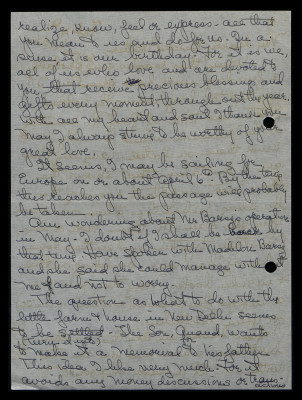 realize, know, feel or express - all that
you mean to us and do for us. In a
sense it is our birthday - for it is we,
all of us who love and are devoted to
you, that receive precious blessing and
gifts every moment throughout the year.
With all my heart and soul I thank you
May I always strive to be worthy of your
great love.
It seems, I may be sailing for
Europe on or about April 6th By the time
this reaches you the passage will probably
be taken.
Am wondering about Mr Barsos operation
in May - I doubt if I shall be back by
that time. Have spoken with Madhbir
and she said she could manage without
me and not to worry.
The question as to what to do with the
little farm & house in New Delhi seems
to be settled - The Son, Anand, wants
(Turn it into)
to make it a memorial to his father
This idea I like very much for it
avoids any money discussions or trans-